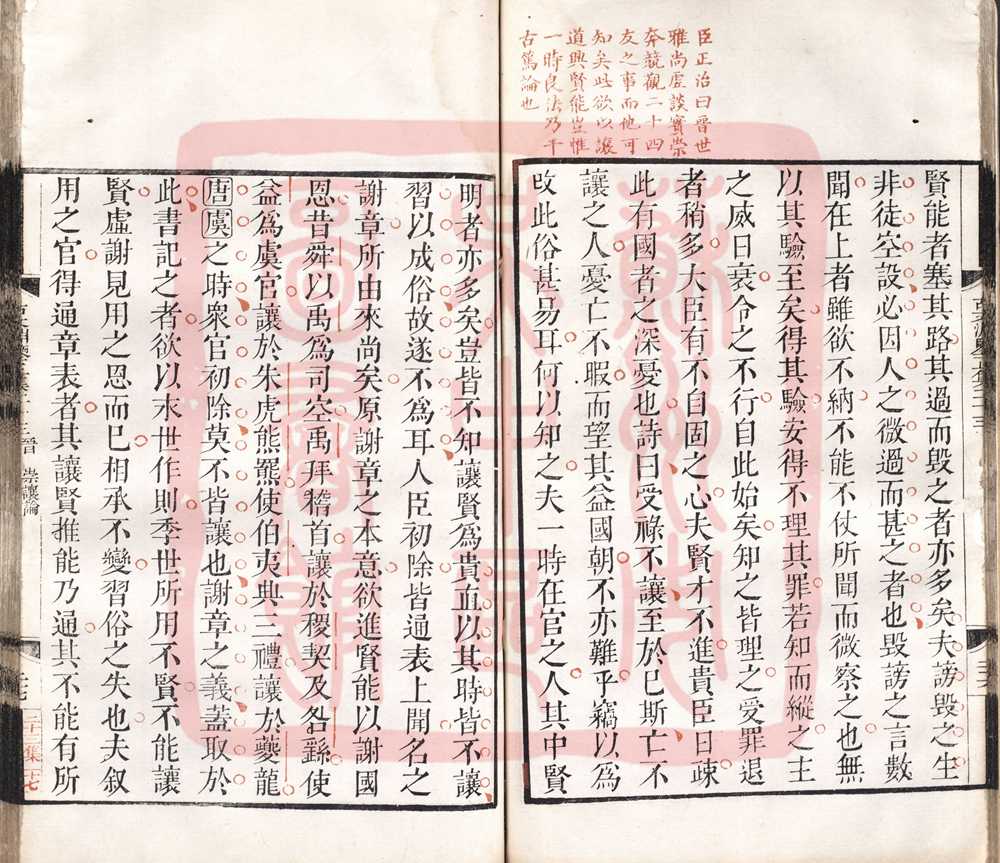 臣正治曰晉世
雅尚虛談實崇
奔競觀二十四
友之事而他可
知矣此欲以讓
道興賢能豈惟
一時良法乃千
古篤論也
賢能者塞其路其過而毀之者亦多矣夫謗毀之生
非徒空設必因人之微過而甚之者也毀謗之言數
聞在上者雖欲不納不能不仗所聞而微察之也無
以其驗至矣得其驗安得不理其罪若知而縱之主
之威日衰令之不行自此始矣知之皆理之受罪退
者稍多大臣有不自固之心夫賢才不進貴臣日疎
此有國者之深憂也詩曰受祿不讓至於巳斯亡不
讓之人憂亡不暇而望其益國朝不亦難乎竊以為
攺此俗甚易耳何以知之夫一時在官之人其中賢
明者亦多矣豈皆不知讓賢爲貴直以其時皆不讓
習以成俗故遂不爲耳人臣初除皆通表上聞名之
謝章所由來尚矣原謝章之本意欲進賢能以謝國
恩昔舜以禹爲司空禹拜稽首讓於稷契及咎繇使
益爲虞官讓於朱虎熊羆使伯夷典三禮讓於夔龍
唐虞之時衆官初除莫不皆讓也謝章之義蓋取於
此書記之者欲以永世作則季世所用不賢不能讓
賢虛謝見用之恩而巳相承不變習俗之失也夫叙
用之官得通章表者其讓賢推能乃通其不能有所
晉 崇讓論
二十三集 廿七